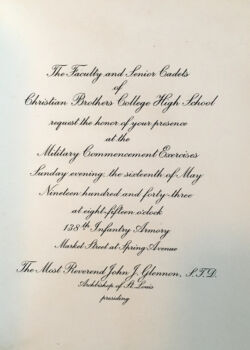 The Faculty and Senior Cadets
of
Christian Brothers College High School
request the honor of your presence
at the
Military Commencement Exercises
Sunday evening, the sixteenth of May
Nineteen hundred and forty-three
at eight-fifteen o'clock
138th Infantry Armory
Market Street at Spring Avenue
The Most Reverend John J. Glennon, S.T.D.
Archbishop of St. Louis
presiding